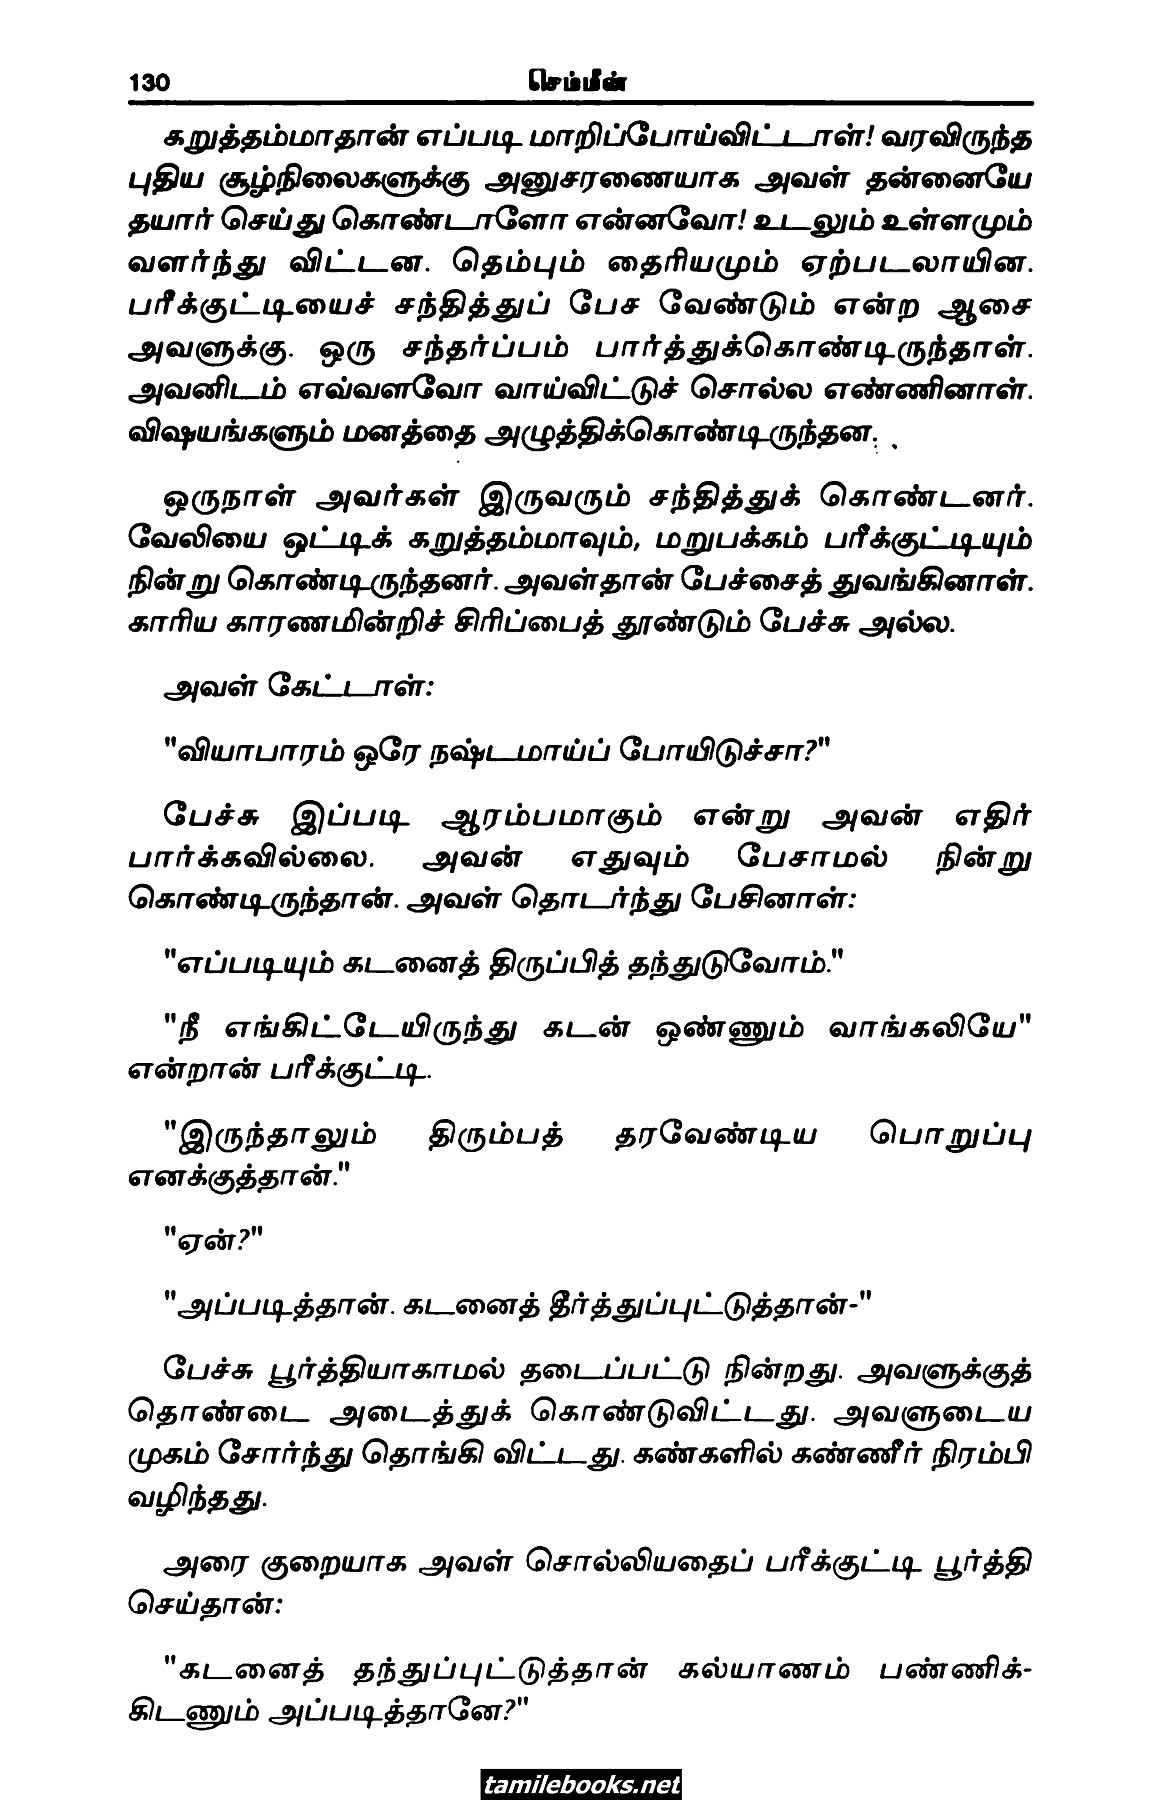 130 செம்மீன்
கறுத்தம்மாதான் எப்படி மாறிப்போய்விட்டாள்! வரவிருந்த
புதிய சூழ்நிலைகளுக்கு அனுசரணையாக அவள் தன்னையே
தயார் செய்து கொண்டாளோ என்னவோ! உடலும் உள்ளமும்
வளர்ந்து விட்டன. தெம்பும் தைரியமும் ஏற்படலாயின.
பரீக்குட்டியைச் சந்தித்துப் பேச வேண்டும் என்ற ஆசை
அவளுக்கு. ஒரு சந்தர்ப்பம் பார்த்துக்கொண்டிருந்தாள்.
அவனிடம் எவ்வளவோ வாய்விட்டுச் சொல்ல எண்ணினாள்.
விஷயங்களும் மனத்தை அழுத்திக்கொண்டிருந்தன.
ஒருநாள் அவர்கள் இருவரும் சந்தித்துக் கொண்டனர்.
வேலியை ஒட்டிக் கறுத்தம்மாவும், மறுபக்கம் பரீக்குட்டியும்
நின்று கொண்டிருந்தனர். அவள்தான் பேச்சைத் துவங்கினாள்.
காரிய காரணமின்றிச் சிரிப்பைத் தூண்டும் பேச்சு அல்ல.
அவள் கேட்டாள்:
"வியாபாரம் ஒரே நஷ்டமாய்ப் போயிடுச்சா?"
பேச்சு இப்படி ஆரம்பமாகும் என்று அவன் எதிர்
பார்க்கவில்லை. அவன் எதுவும் பேசாமல் நின்று
கொண்டிருந்தான். அவள் தொடர்ந்து பேசினாள்:
"எப்படியும் கடனைத் திருப்பித் தந்துடுவோம்."
"நீ எங்கிட்டேயிருந்து கடன் ஒண்ணும் வாங்கலியே"
என்றான் பரீக்குட்டி.
"இருந்தாலும் திரும்பத் தரவேண்டிய பொறுப்பு
எனக்குத்தான்."
"ஏன்?"
"அப்படித்தான். கடனைத் தீர்த்துப்புட்டுத்தான்-"
பேச்சு பூர்த்தியாகாமல் தடைப்பட்டு நின்றது. அவளுக்குத்
தொண்டை அடைத்துக் கொண்டுவிட்டது. அவளுடைய
முகம் சோர்ந்து தொங்கி விட்டது. கண்களில் கண்ணீர் நிரம்பி
வழிந்தது.
அரை குறையாக அவள் சொல்லியதைப் பரீக்குட்டி பூர்த்தி
செய்தான்:
"கடனைத் தந்துப்புட்டுத்தான் கல்யாணம் பண்ணிக்-
கிடணும் அப்படித்தானே?"
tamilebooks.net